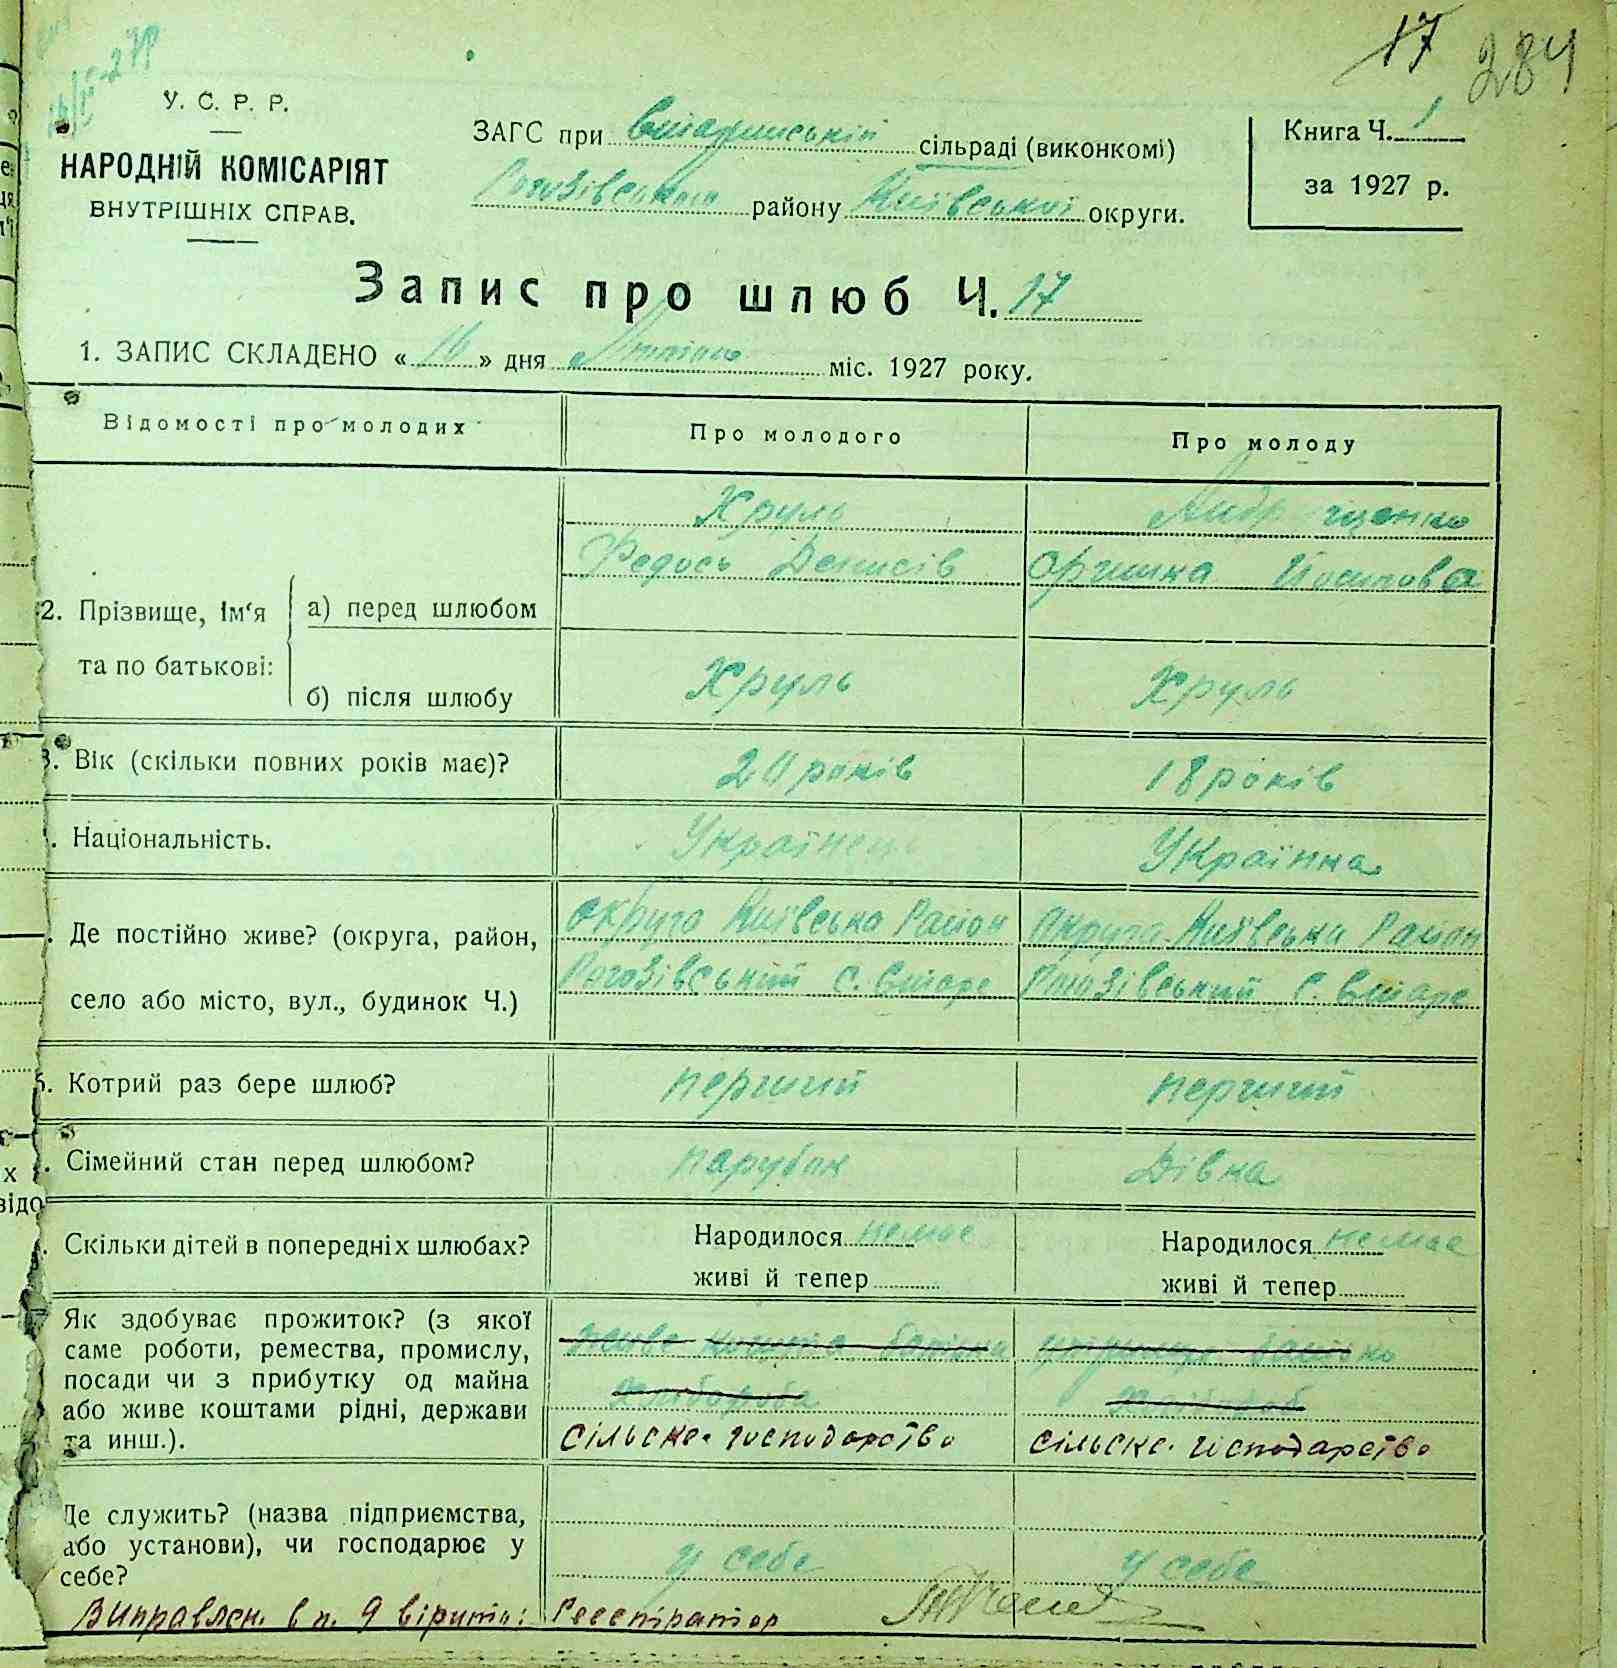 17 284
У. С. Р. Р.
НАРОДНІЙ КОМІСАРІЯТ
ВНУТРІШНІХ СПРАВ.
ЗАГС при Старинській сільраді (виконкомі)
Рогозівського району Київської округи.
Книга Ч. 1
за 1927 р.
Запис про шлюб Ч. 17
1. ЗАПИС СКЛАДЕНО « 16 » дня міс. 1927 року.
Відомості про молодих Про молодого Про молоду
Хруль
Федось Денисів Оришка Йосипова
2. Прізвище, ім'я а) перед шлюбом
та по батькові:
б) після шлюбу Хруль Хруль
3. Вік (скільки повних років має)? 20 років 18 років
. Національність. Українець Українка
округа Київська Район округа Київська Район
. Де постійно живе? (округа, район,
Рогозівський с. Рогозівський с.
село або місто, вул., будинок Ч.)
6. Котрий раз бере шлюб? перший перший
. Сімейний стан перед шлюбом? парубок Дівка
. Скільки дітей в попередніх шлюбах? Народилося немає Народилося немає
живі й тепер живі й тепер
Як здобуває прожиток? (з якої
саме роботи, ремества, промислу,
посади чи з прибутку од майна
або живе коштами рідні, держави
та инш.). сільске господарство сільске господарство
Де служить? (назва підприємства,
або установи), чи господарює у
себе? у себе у себе
Виправлен. в п. 9 вірити: Реєстратор